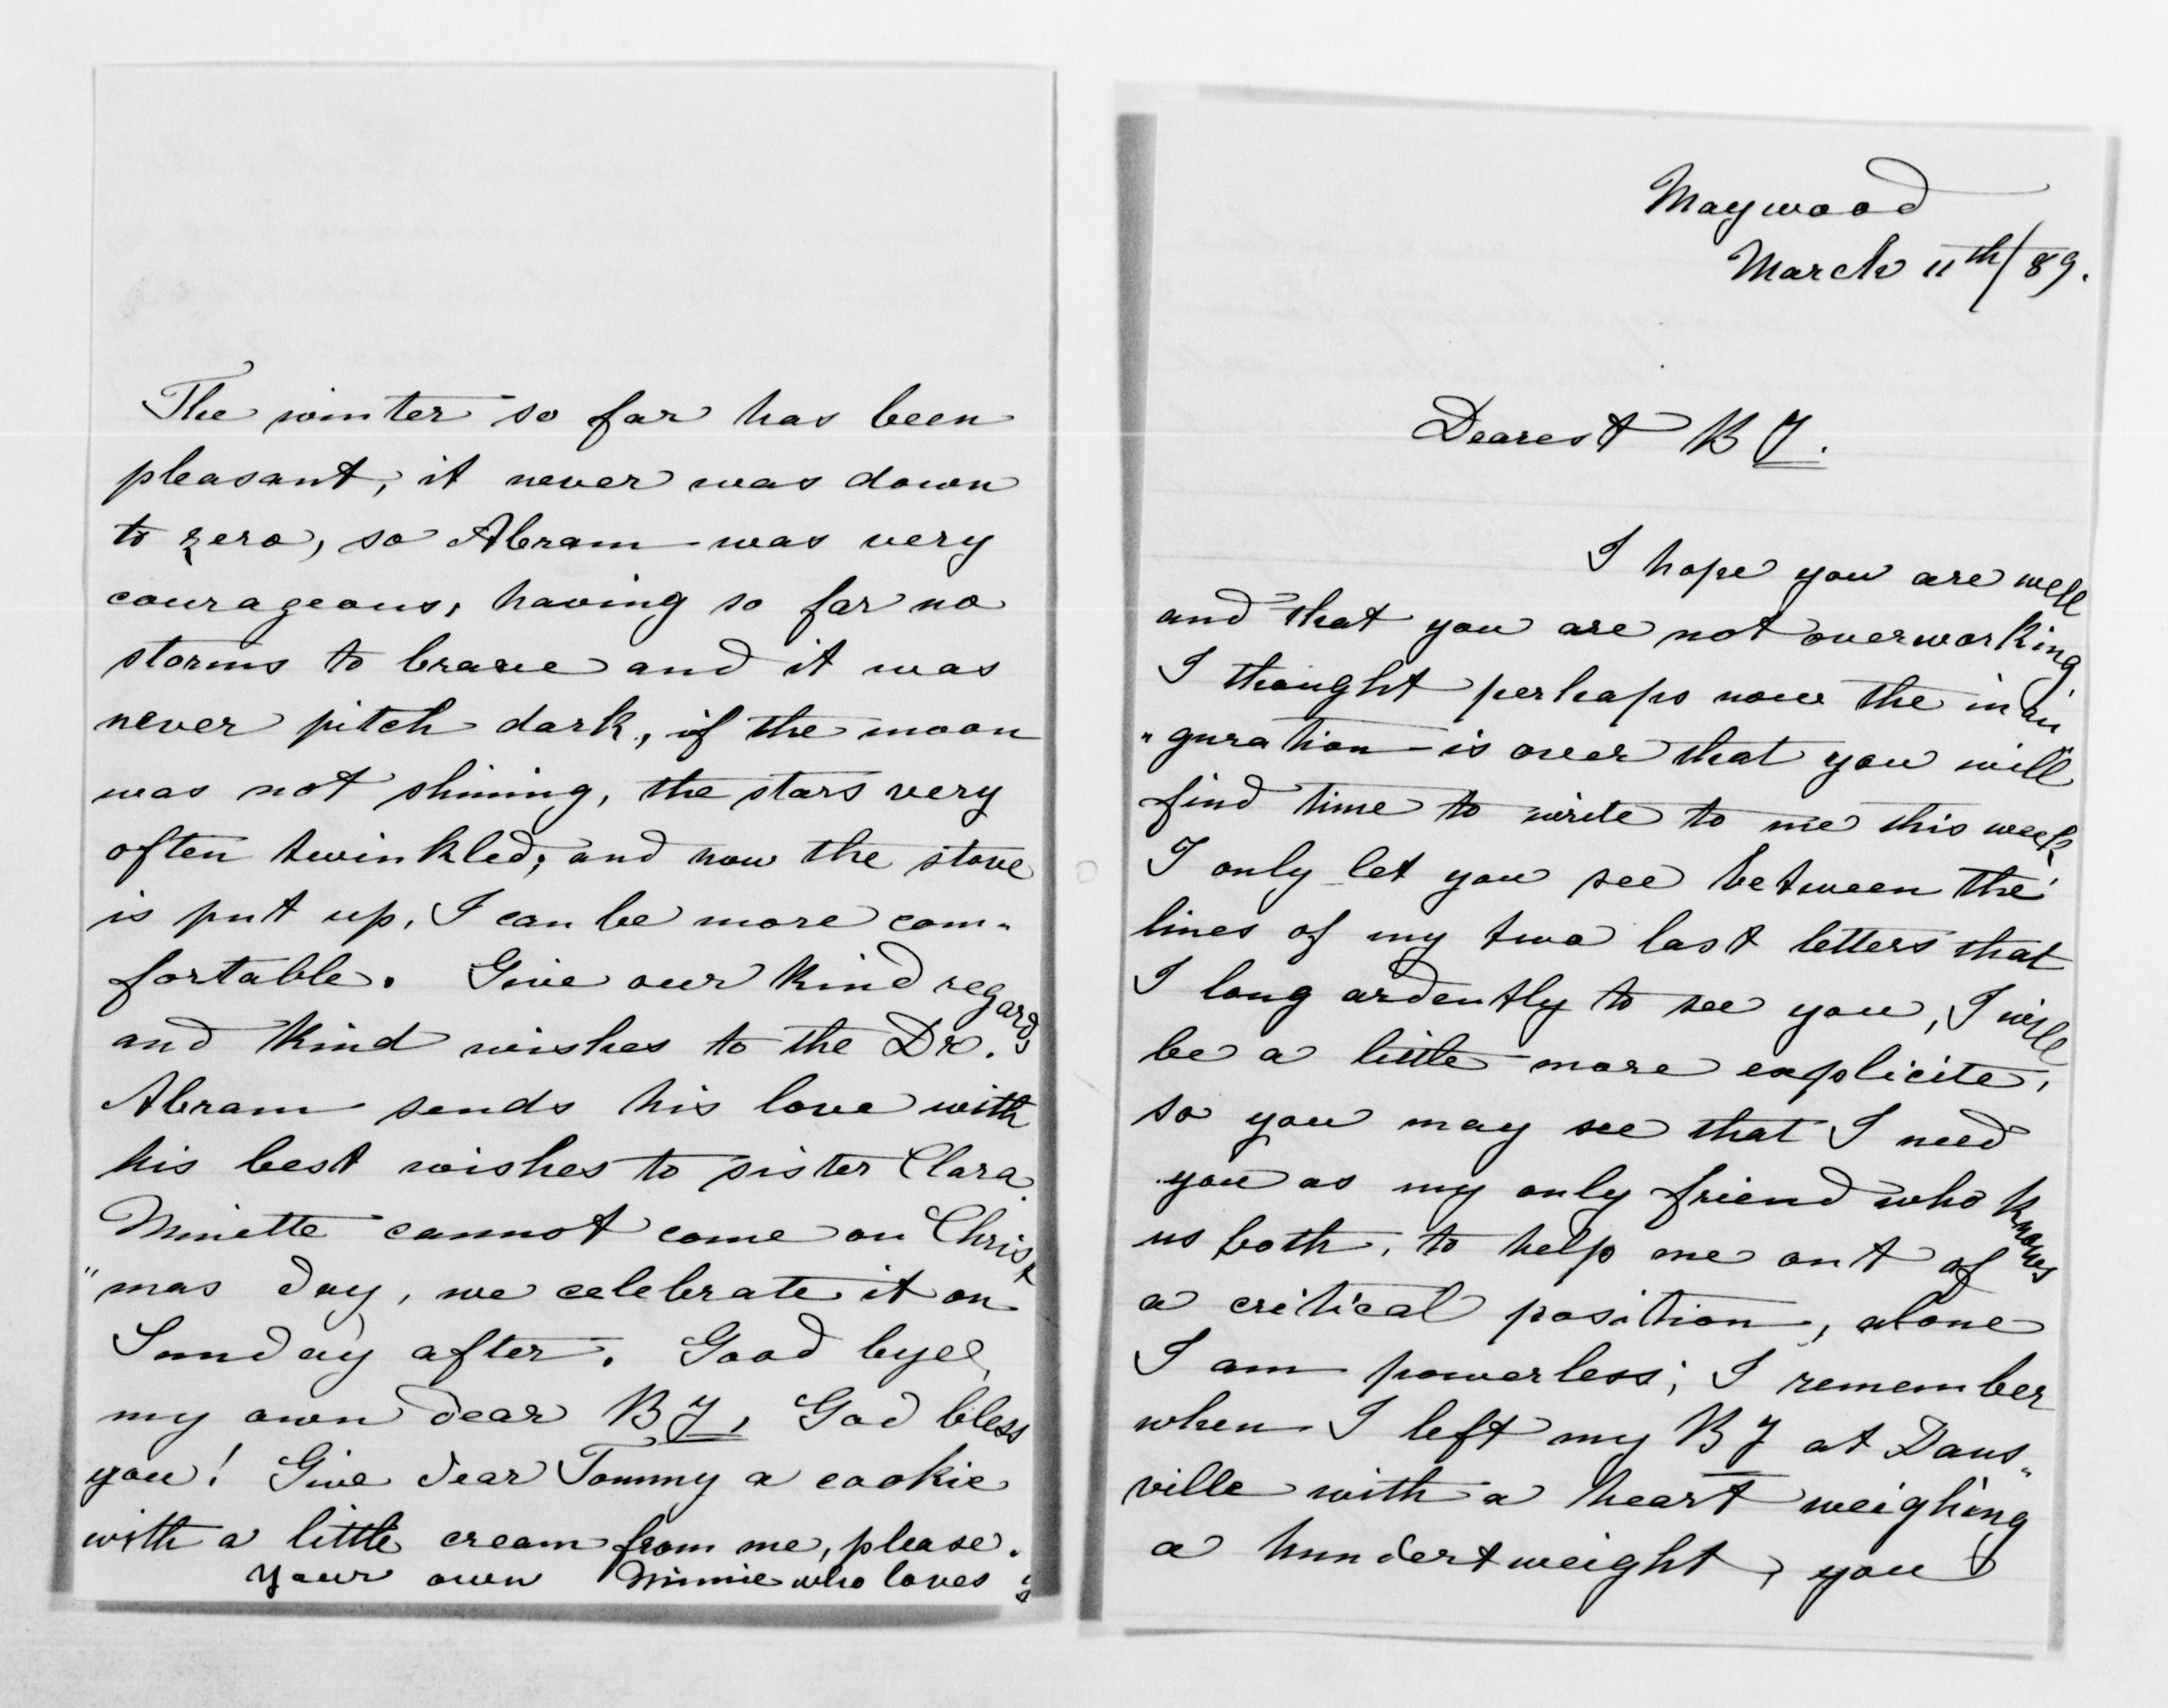 The winter so far has been
pleasant, it never was down
to zero, so Abram was very
courageous, having so far no
storms to brave and it was
never pitch dark, if the moon
was not shining, the stars very
often twinkled; and now the stove
is put up, I can be more com-
fortable. Give our kind regards
and kind wishes to the Dr.
Abram sends his love with
his best wishes to sister Clara.
Minette cannot come on Christ
"mas day, we celebrate it on
Sunday after. Good bye,
my own dear B J, God bless
you! Give dear Tommy a cookie
with a little cream from me, please.
Your own Minnie who loves
Maywood
March 11th/89.
Dearest B J.
I hope you are well
and that you are not overworking.
I thought perhaps now the inau
"guration is over that you will
find time to write to me this week.
I only let you see between the
lines of my two last letters that
I long ardently to see you, I will
be a little more explicite,
so you may see that I need
you as my only friend who knows
us both, to help me out of
a critical position, alone
I am powerless; I remember
when I left my B J at Dans"
ville with a heart weighing
a hundertweight, you